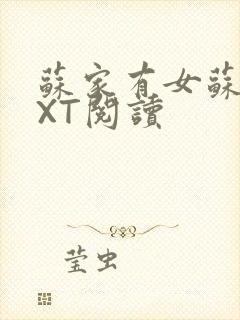 蘇家有女蘇
XT閱讀
莹虫